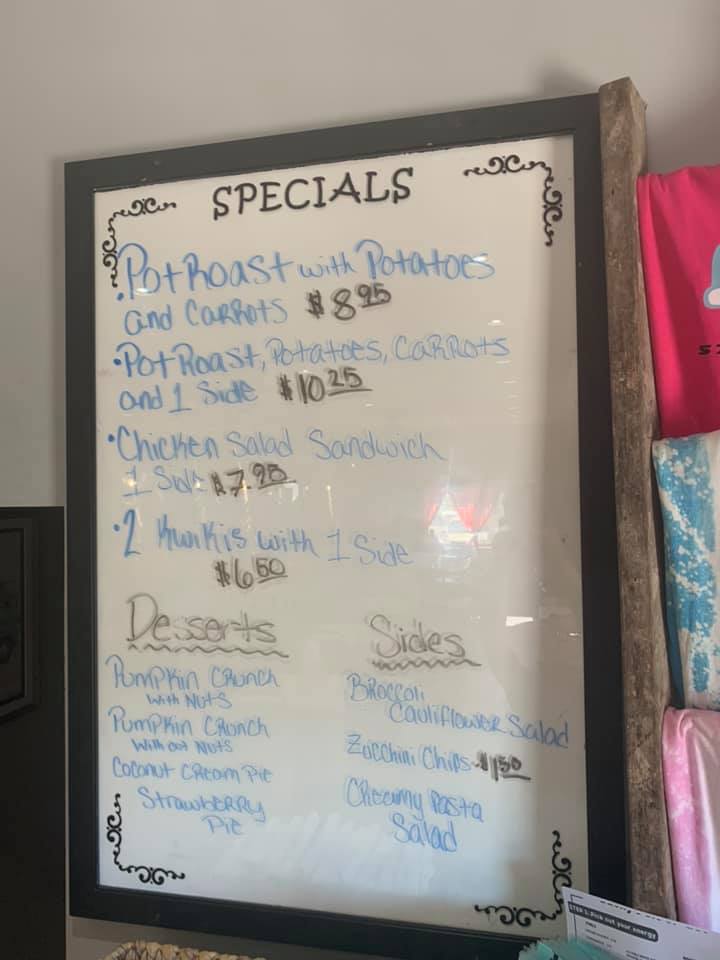 SPECIALS
• Pot Roast with Potatoes
and Carrots $8.95
• Pot Roast, Potatoes, Carrots
and 1 Side $10.25
• Chicken Salad Sandwich
1 Side $7.95
• 2 Kwikis with 1 Side
$6.50
Desserts
Pumpkin Crunch
with Nuts
Pumpkin Crunch
without Nuts
Coconut Cream Pie
Strawberry
Pie
Sides
Broccoli
Cauliflower Salad
Zucchini Chips $1.50
Creamy Pasta
Salad
STEP 1. Pick out your energy